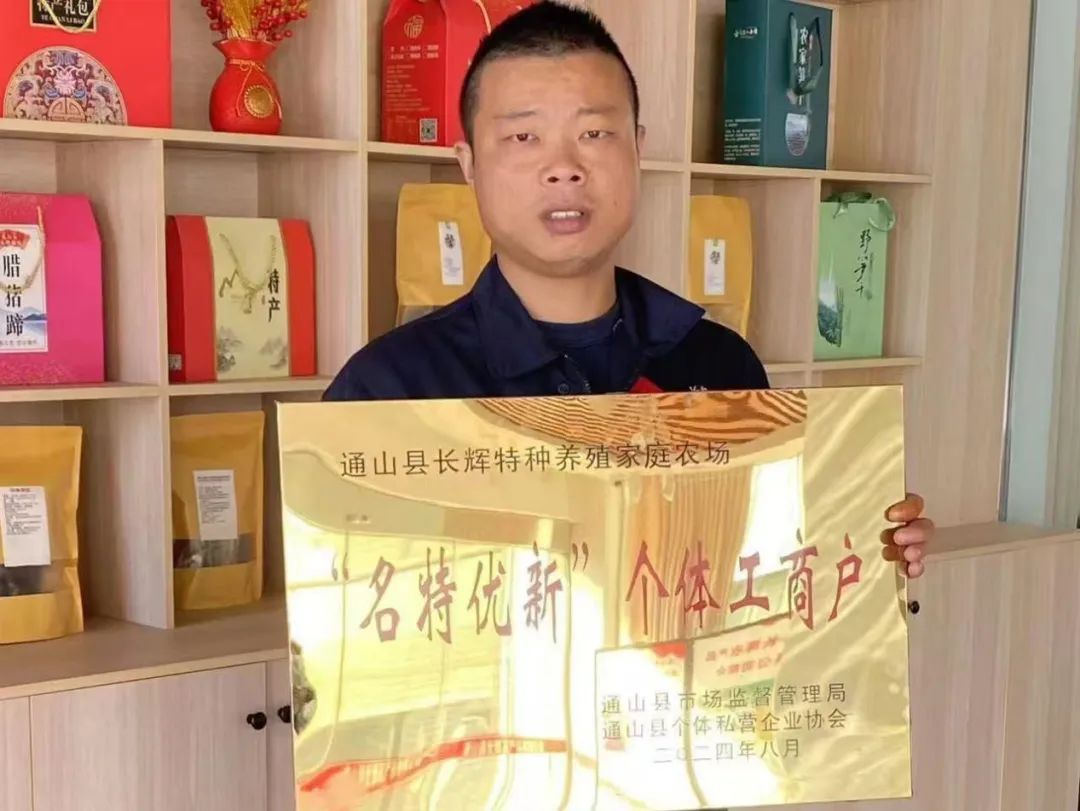 产礼包
福
农家
腊猪蹄
特产
野小笋干
通山县长辉特种养殖家庭农场
“名特优新”个体工商户
通山县市场监督管理局
通山县个体私营企业协会
二〇二四年八月